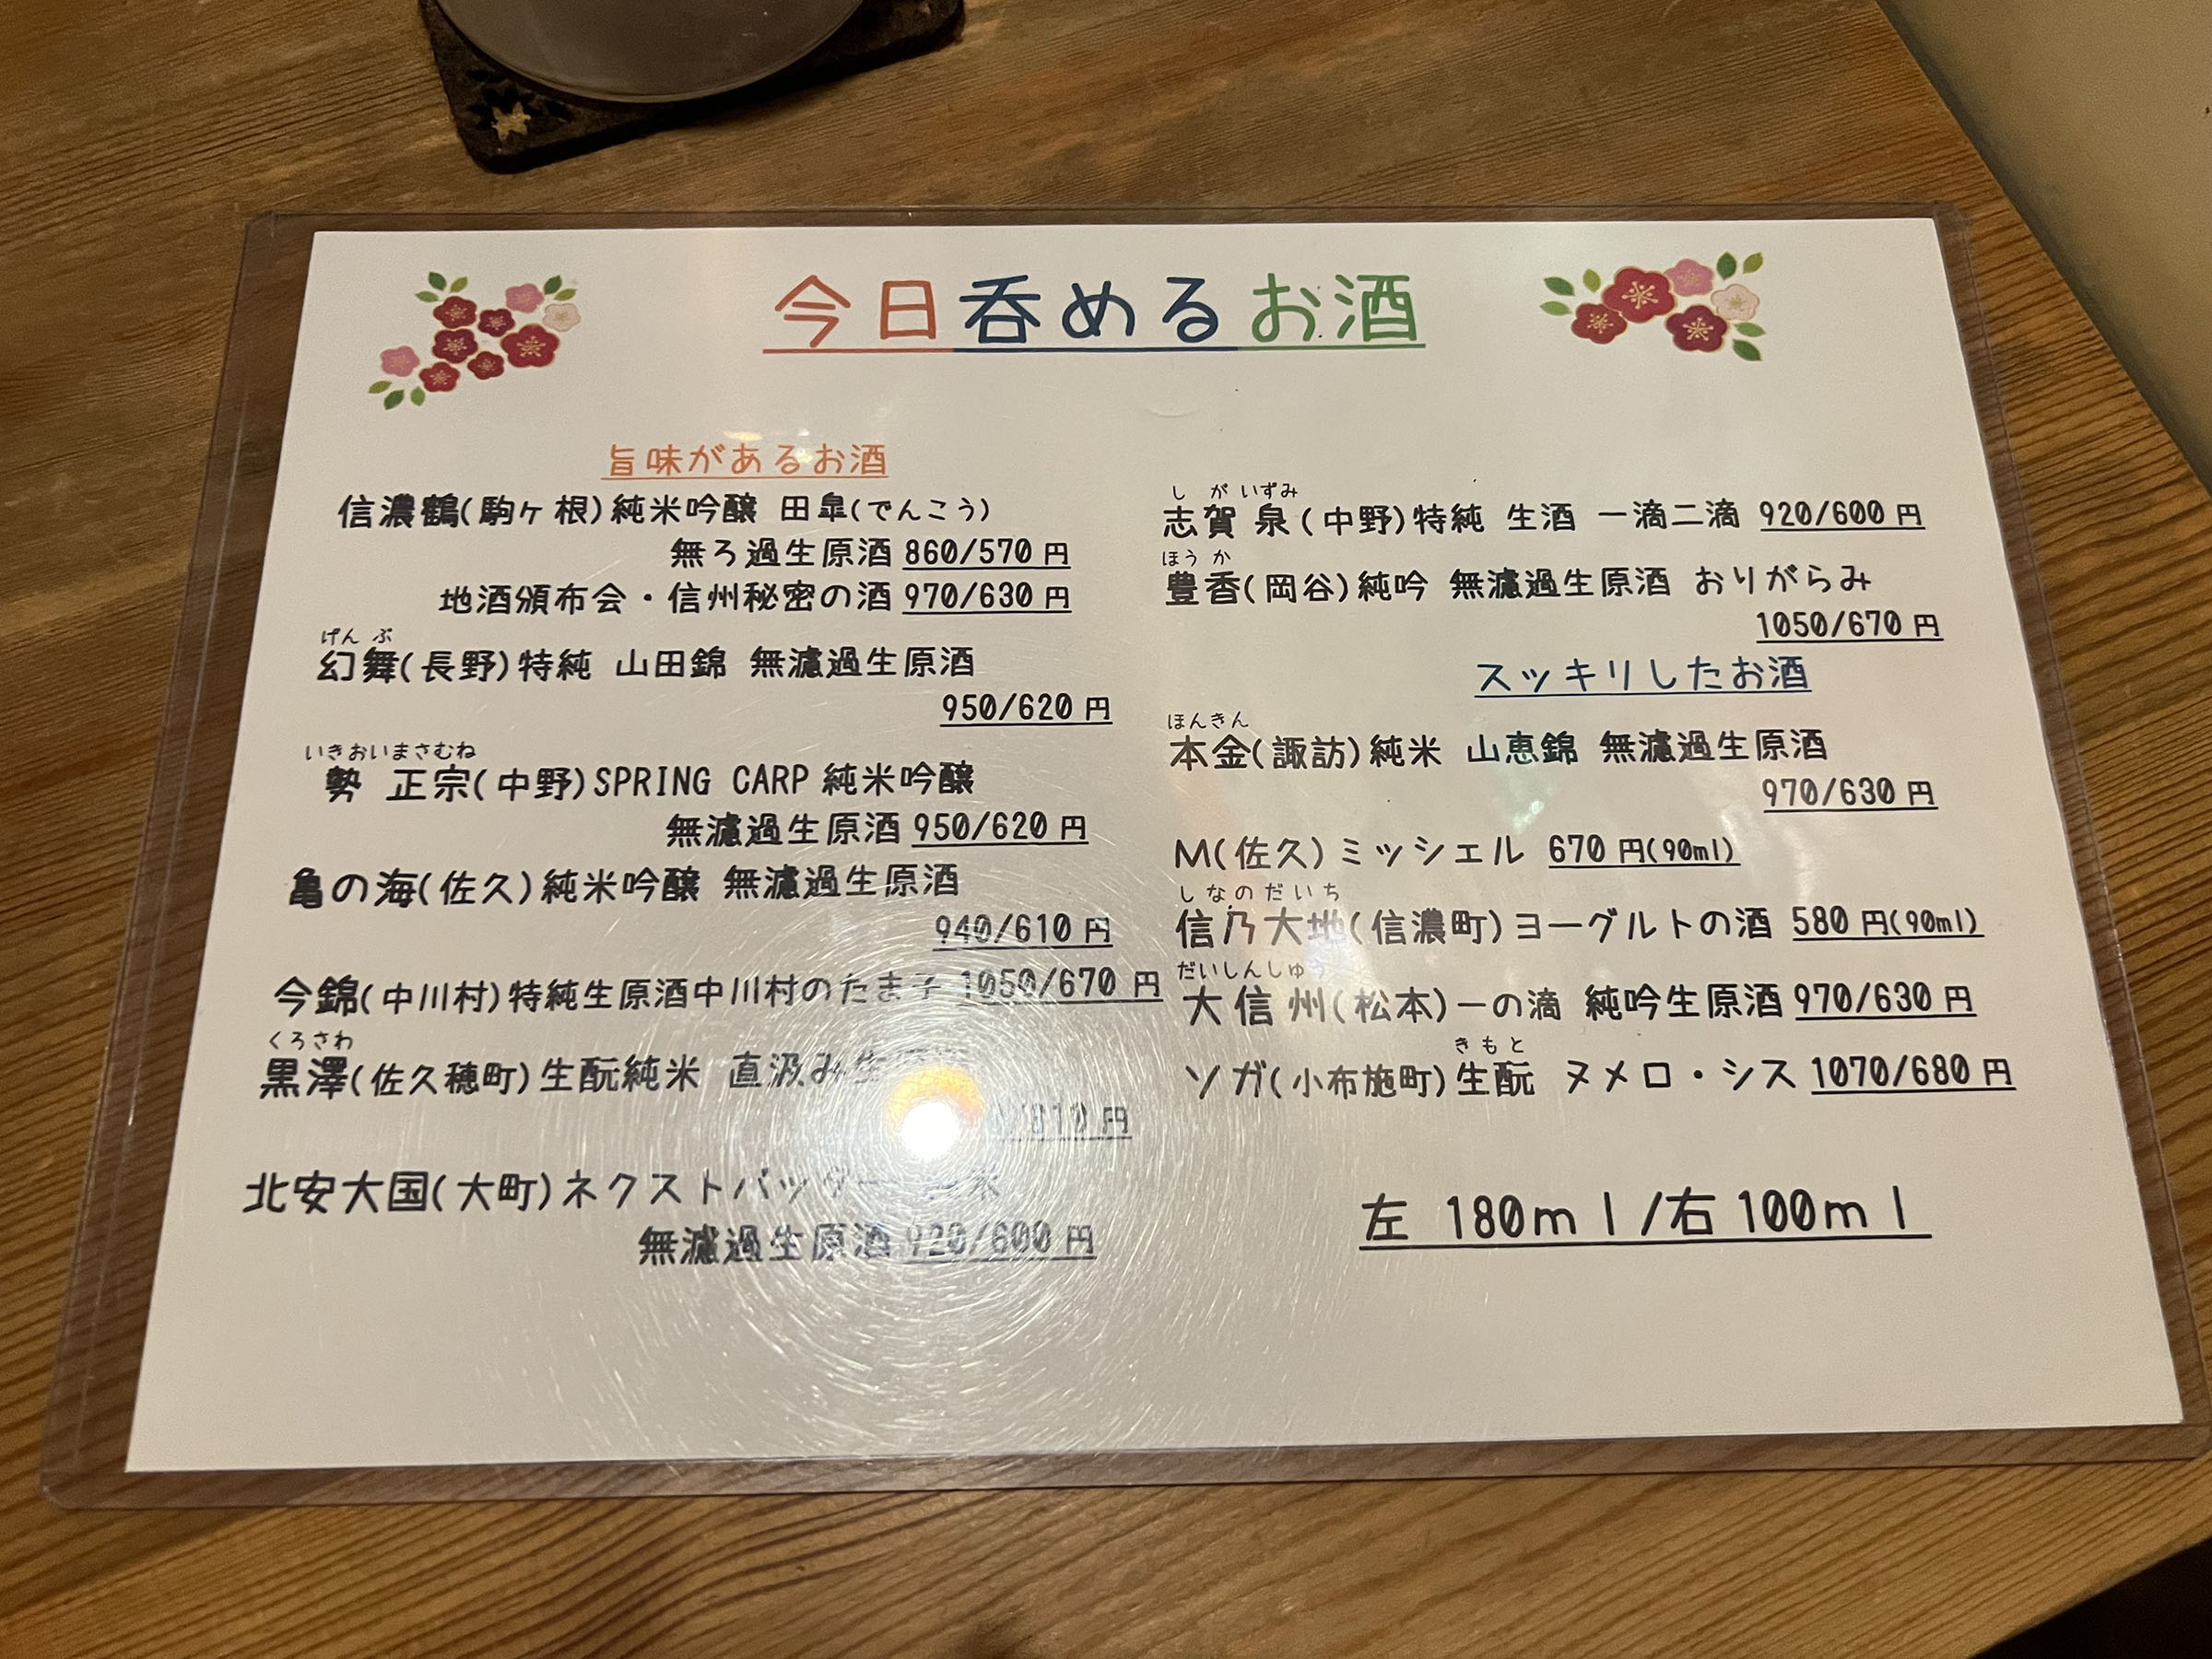 今日呑めるお酒
旨味があるお酒
信濃鶴(駒ヶ根)純米吟醸 田皐(でんこう)
無ろ過生原酒 860/570 円
地酒頒布会・信州秘密の酒 970/630 円
げん ぶ
幻舞(長野)特純 山田錦 無濾過生原酒
950/620 円
いきおいまさむね
勢 正宗(中野)SPRING CARP 純米吟醸
無濾過生原酒 950/620 円
亀の海(佐久)純米吟醸 無濾過生原酒
940/610 円
今錦(中川村)特純生原酒中川村のたま子 1050/670 円
くろさわ
黒澤(佐久穂町)生酛純米 直汲み生
/810 円
北安大国(大町)ネクストバッター
無濾過生原酒 920/600 円
し が いずみ
志賀 泉(中野)特純 生酒 一滴二滴 920/600 円
ほう か
豊香(岡谷)純吟 無濾過生原酒 おりがらみ
1050/670 円
スッキリしたお酒
ほんきん
本金(諏訪)純米 山恵錦 無濾過生原酒
970/630 円
M(佐久)ミッシェル 670 円(90ml)
しなのだいち
信乃大地(信濃町)ヨーグルトの酒 580 円(90ml)
だいしんしゅう
大信州(松本)一の滴 純吟生原酒 970/630 円
きもと
ソガ(小布施町)生酛 ヌメロ・シス 1070/680 円
左 180ml/右 100ml